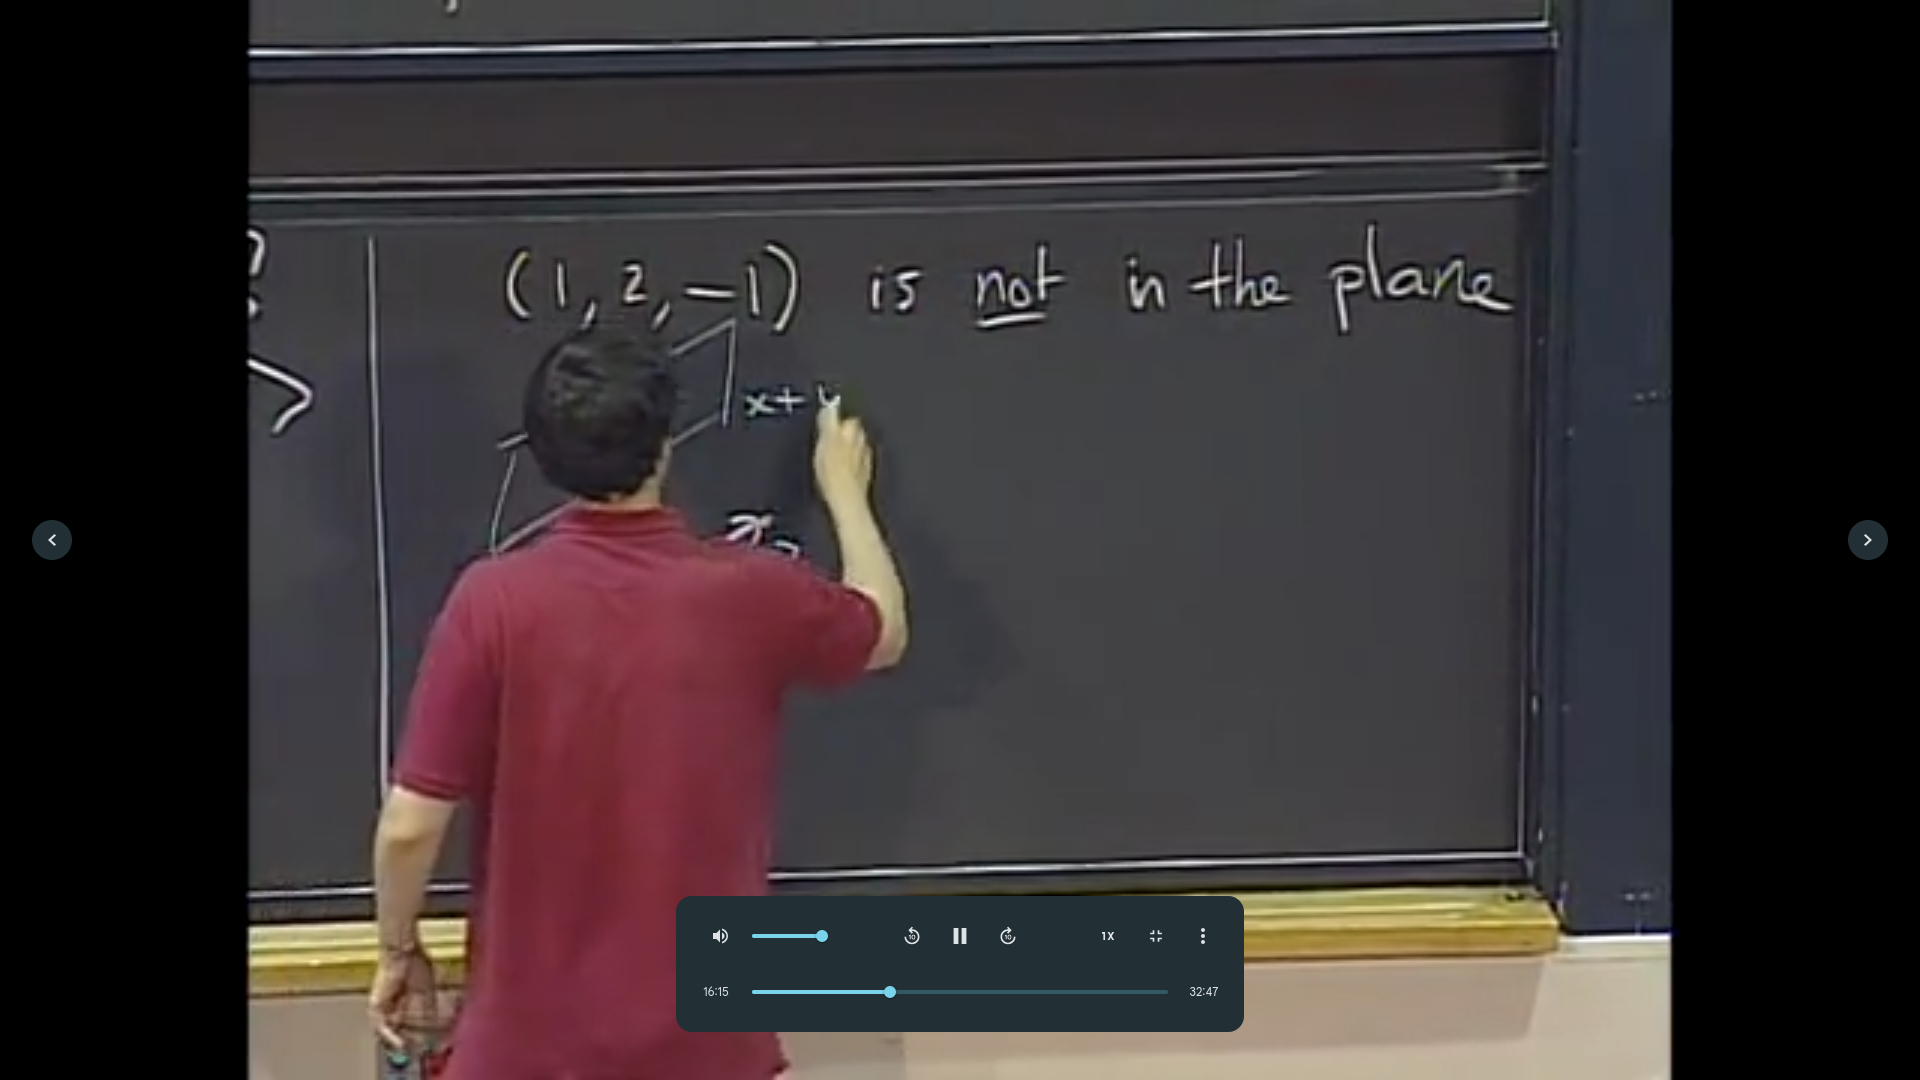 (1, 2, -1) is not in the plane
x+ y
1X
16:15
32:47